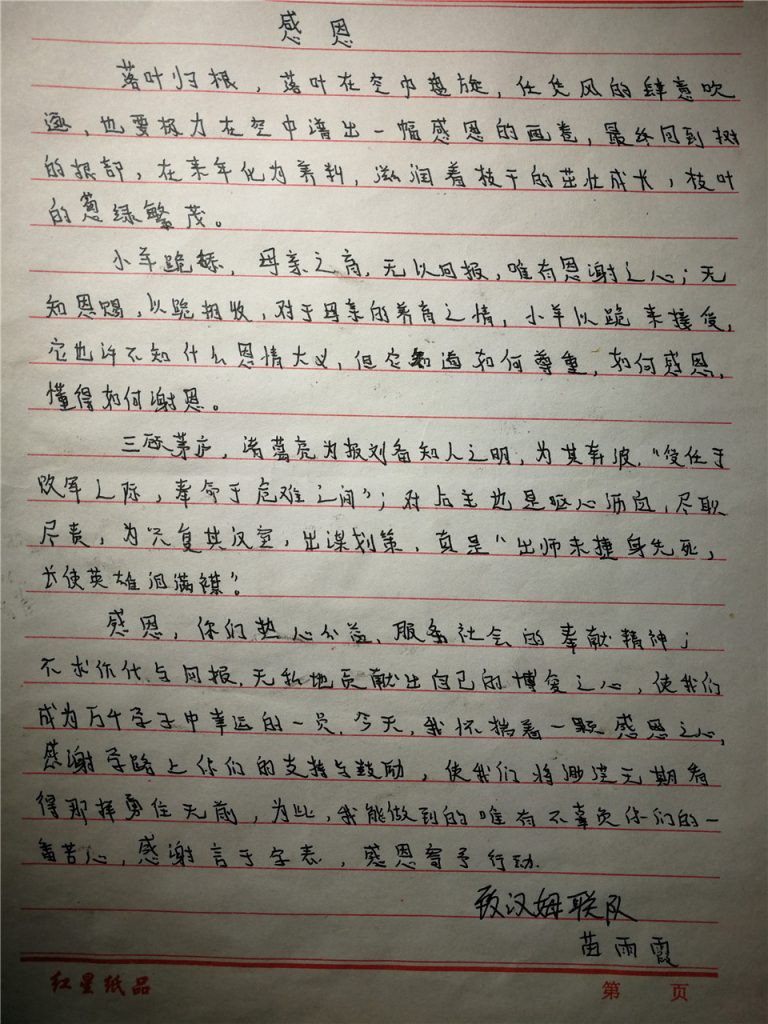 感恩
落叶归根，落叶在空中盘旋，任凭风的肆意吹
逐，也要极力在空中谱出一幅感恩的画卷，最终回到树
的根部，在来年化为养料，滋润着枝干的茁壮成长，枝叶
的葱绿繁茂。
小羊跪舔，母亲之育，无以回报，唯有恩谢之心；无
知恩赐，以跪相收，对于母亲的养育之情，小羊以跪来接受，
它也许不知什么恩情大义，但它知道如何尊重，如何感恩，
懂得如何谢恩。
三顾茅庐，诸葛亮为报刘备知人之明，为其奔波，“受任于
败军之际，奉命于危难之间”；对后主也是呕心沥血，尽职
尽责，为兴复其汉室，出谋划策，真是“出师未捷身先死，
长使英雄泪满襟”。
感恩，你们热心公益、服务社会的奉献精神；
不求你代与回报，无私地贡献出自己的博爱之心，使我们
成为万千学子中幸运的一员，今天，我怀揣着一颗感恩之心，
感谢学路上你们的支持与鼓励，使我们将渺茫无期看
得那样勇往无前，为此，我能做到的唯有不辜负你们的一
番苦心，感谢言于字表，感恩寄予行动.
致汉姆联队
苗雨霞
红星纸品
第 页